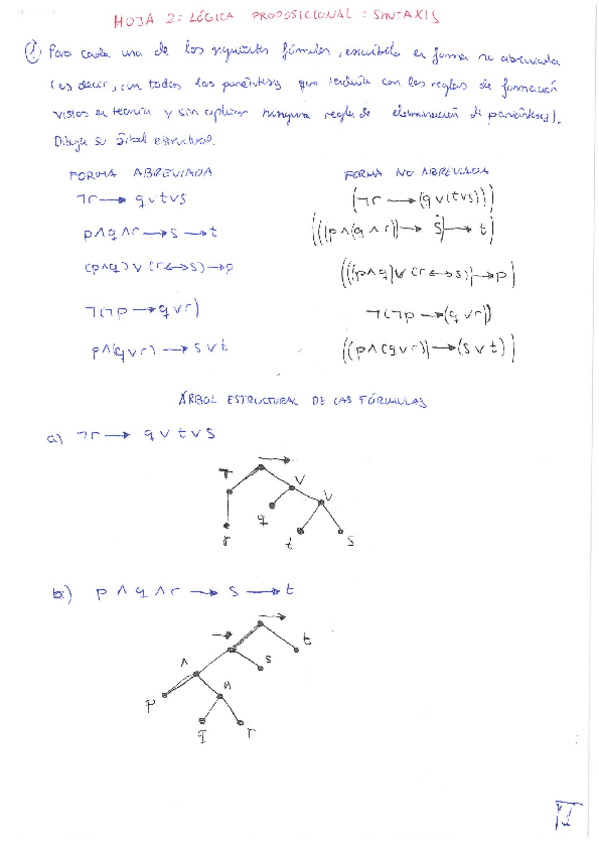 HOJA 2: LÓGICA PROPOSICIONAL: SINTAXIS
① Para cada una de las siguientes fórmulas, escríbela en forma no abreviada
(es decir, con todos los paréntesis que con las reglas de formación
vistas en teoría y sin aplicar ninguna regla de eliminación de paréntesis).
Dibuja su árbol estructural.
FORMA ABREVIADA FORMA NO ABREVIADA
¬r → q∨t∨s (¬r → (q∨(t∨s)))
p∧q∧r → s → t (((p∧(q∧r)) → s) → t)
(p∧q)∨(r↔s)→p (((p∧q)∨(r↔s))→p)
¬(¬p → q∨r) ¬(¬p → (q∨r))
p∧(q∨r) → s∨t ((p∧(q∨r)) → (s∨t))
ÁRBOL ESTRUCTURAL DE LAS FÓRMULAS
a) ¬r → q∨t∨s
→
¬ ∨ ∨
q
r t s
b) p∧q∧r → s → t
→
→ t
∧ s
p ∧
q r